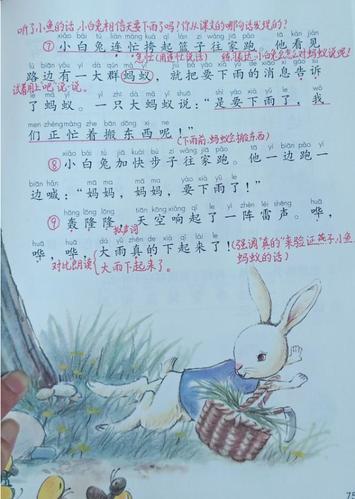 听了小鱼的话,小白兔相信天要下雨了吗?你从课文的哪句话发现的?
⑦小白兔连忙挎起篮子往家跑。他看见
急忙(用连忙说话)
路边有一大群蚂蚁,就把要下雨的消息告诉
试着用上吧说说。
了蚂蚁。一只大蚂蚁说:“是要下雨了,我
们正忙着搬东西呢!”
(下雨前,蚂蚁会搬东西)
⑧小白兔加快步子往家跑。他一边跑一
边喊:“妈妈,妈妈,要下雨了!”
⑨轰隆隆,天空响起了一阵雷声。哗,
拟声词
哗,哗,大雨真的下起来了!
(强调“真的”来验证燕子小鱼
蚂蚁的话)
对比朗读
大雨下起来了。
75